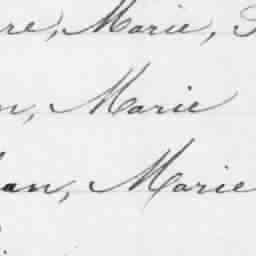 re, Marie,
n, Marie
an, Marie